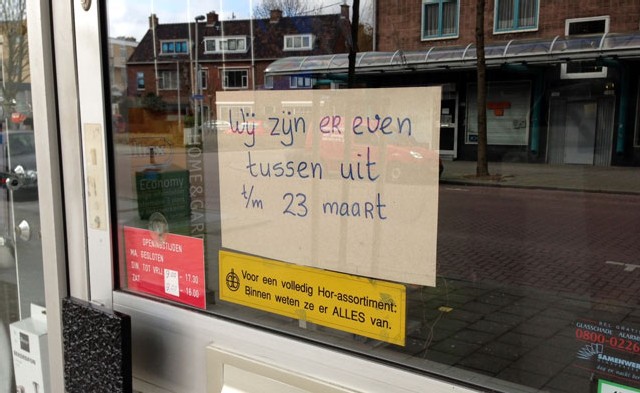 Wij zijn er even
tussen uit
t/m 23 maart
Economy
HOME&GAR
OPENINGSTIJDEN
MA. GESLOTEN
DIN TOT VRIJ 9.00 - 17.30
ZAT 9.00 - 16.00
Voor een volledig Hor-assortiment:
Binnen weten ze er ALLES van.
GLASSCHADE ALARM
0800-0226
SAMENWER